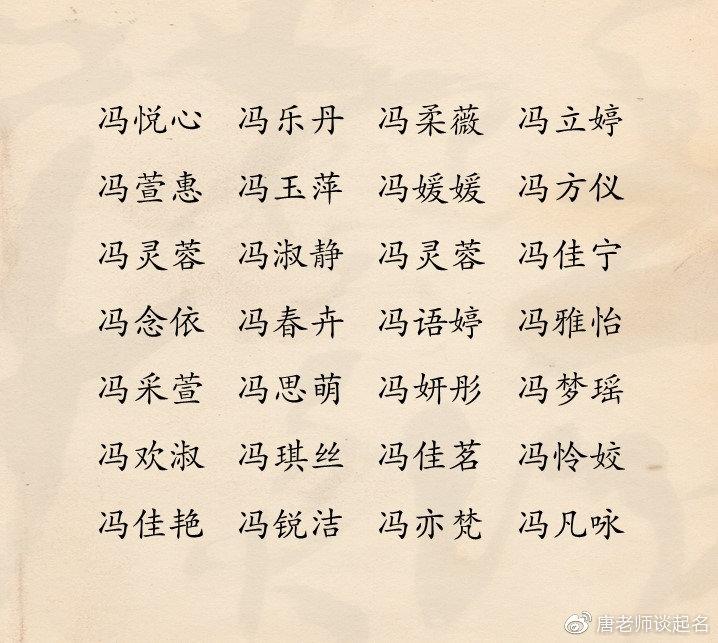 冯悦心 冯乐丹 冯柔薇 冯立婷
冯萱惠 冯玉萍 冯媛媛 冯方仪
冯灵蓉 冯淑静 冯灵蓉 冯佳宁
冯念依 冯春卉 冯语婷 冯雅怡
冯采萱 冯思萌 冯妍彤 冯梦瑶
冯欢淑 冯琪丝 冯佳茗 冯怜姣
冯佳艳 冯锐洁 冯亦梵 冯凡咏
唐老师谈起名